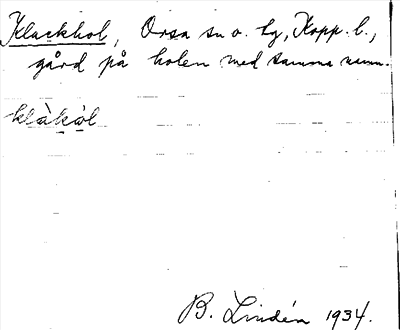 Klackhol, Orsa sn o. tg, Kopp. l.,
gård på holen med samma namn.
klàkòl
B. Lindén 1934.